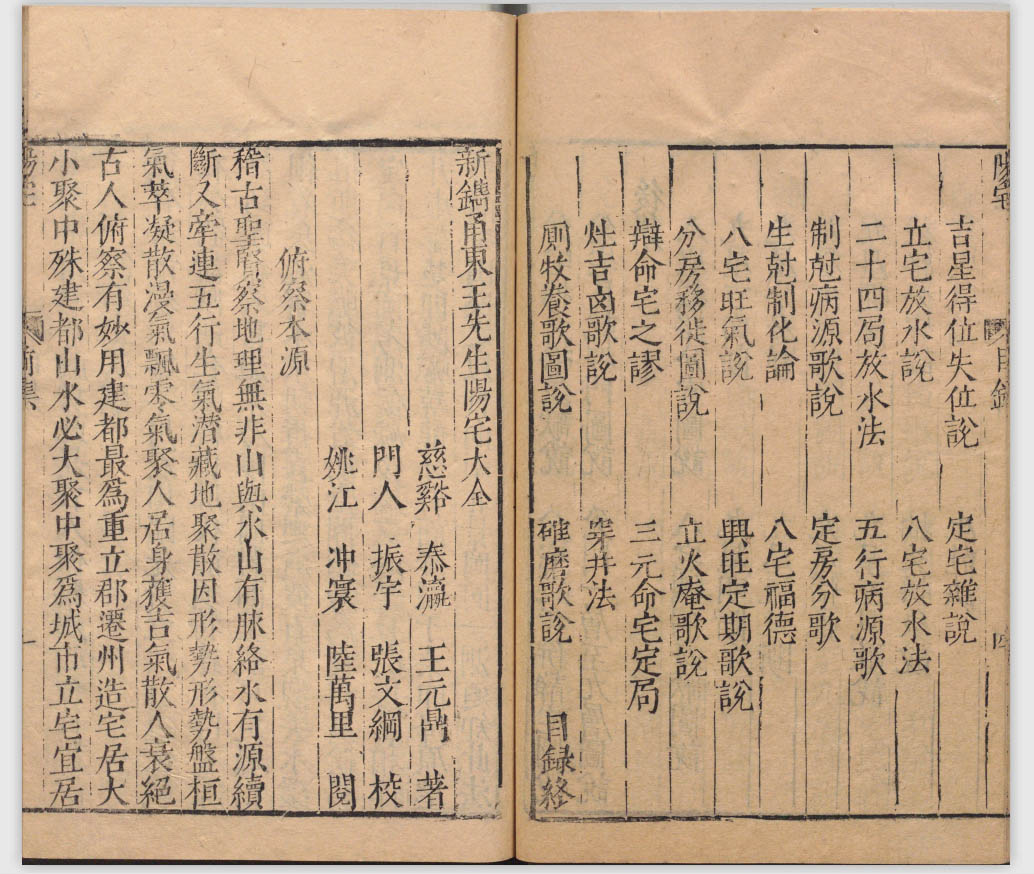 陽宅 目錄 四
吉星得位失位說 定宅雜說
立宅放水說 八宅放水法
二十四局放水法 五行病源歌
制尅病源歌說 定房分歌
生尅制化論 八宅福德
八宅旺氣說 興旺定期歌說
分房移徙圖說 立火庵歌說
辯命宅之謬 三元命宅定局
灶吉凶歌說 穿井法
厠牧養歌圖說 碓磨歌說 目録終
新鐫甬東王先生陽宅大全
慈谿 泰瀛 王元鼎 著
門人 振宇 張文綱 校
姚江 冲寰 陸萬里 閱
俯察本源
稽古聖賢察地理無非山與水山有脉絡水有源續
斷又牽連五行生氣潜藏地聚散因形勢形勢盤桓
氣萃凝散漫氣飄零氣聚人居身獲吉氣散人衰絕
古人俯察有妙用建都最爲重立郡遷州造宅居大
小聚中殊建都山水必大聚中聚爲城市立宅宜居
陽宅 前集 一